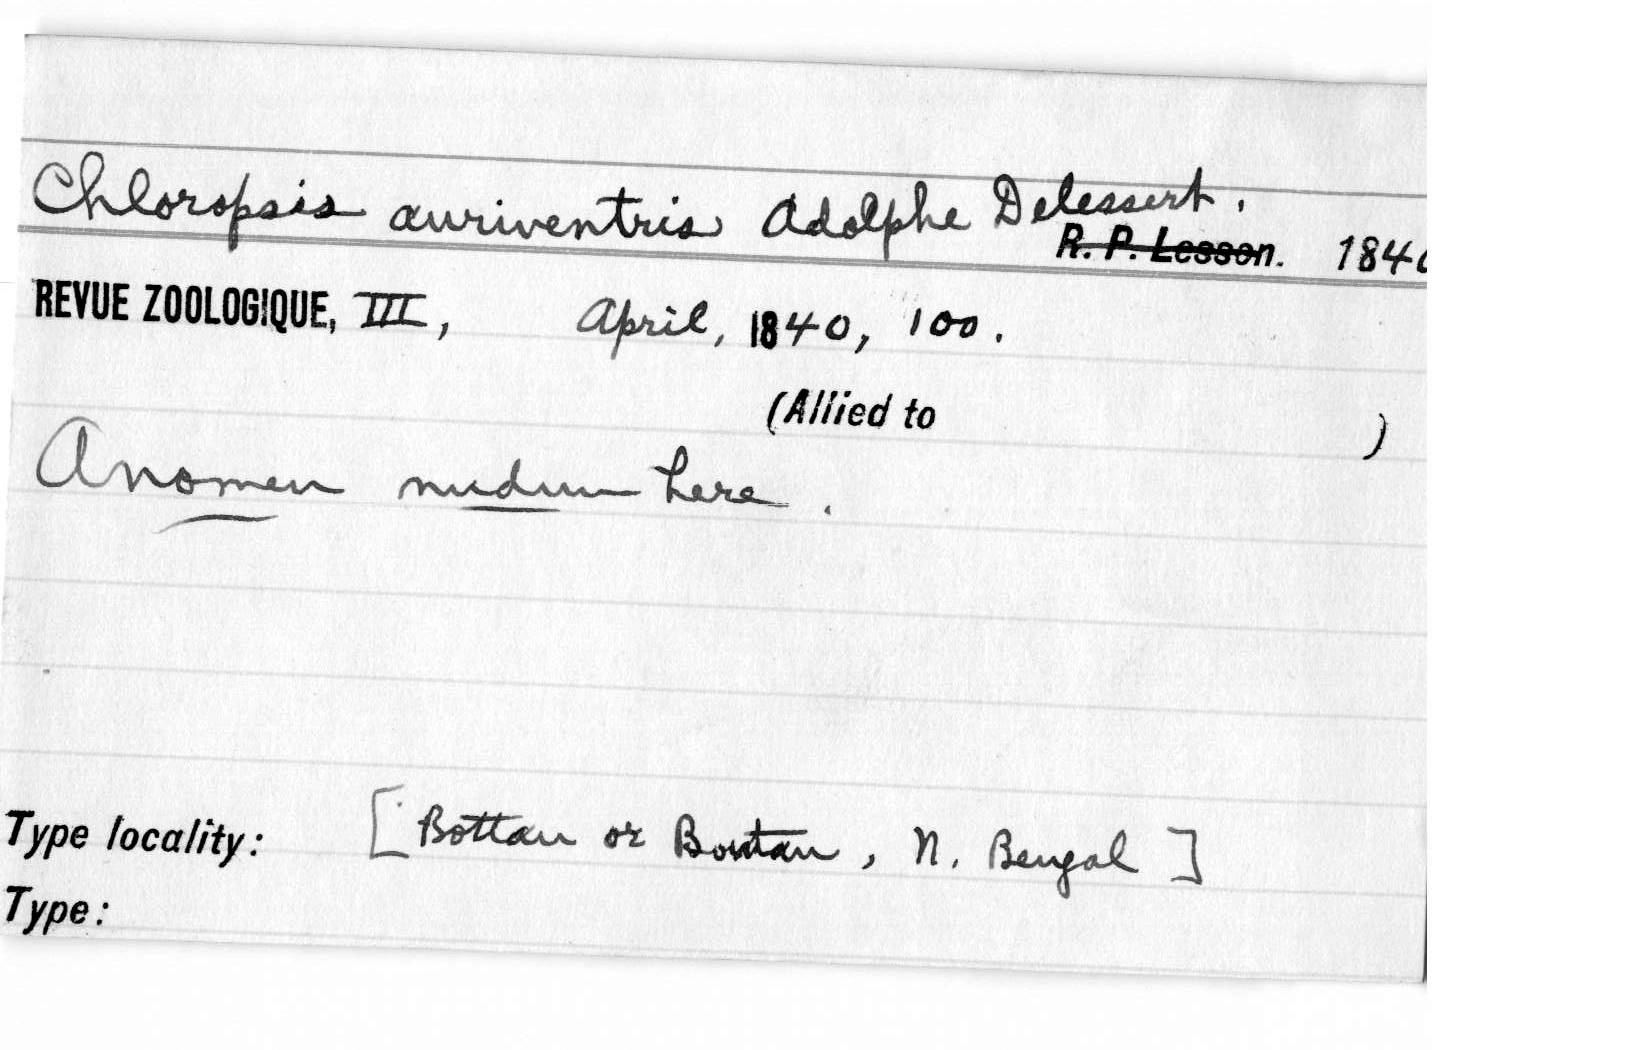 Chloropsis auriventris Adolphe Delessert.
R. P. Lesson. 1840
REVUE ZOOLOGIQUE, III, April, 1840, 100.
(Allied to )
A nomen nudum here.
Type locality: [Bottan or Boutan, N. Bengal]
Type: